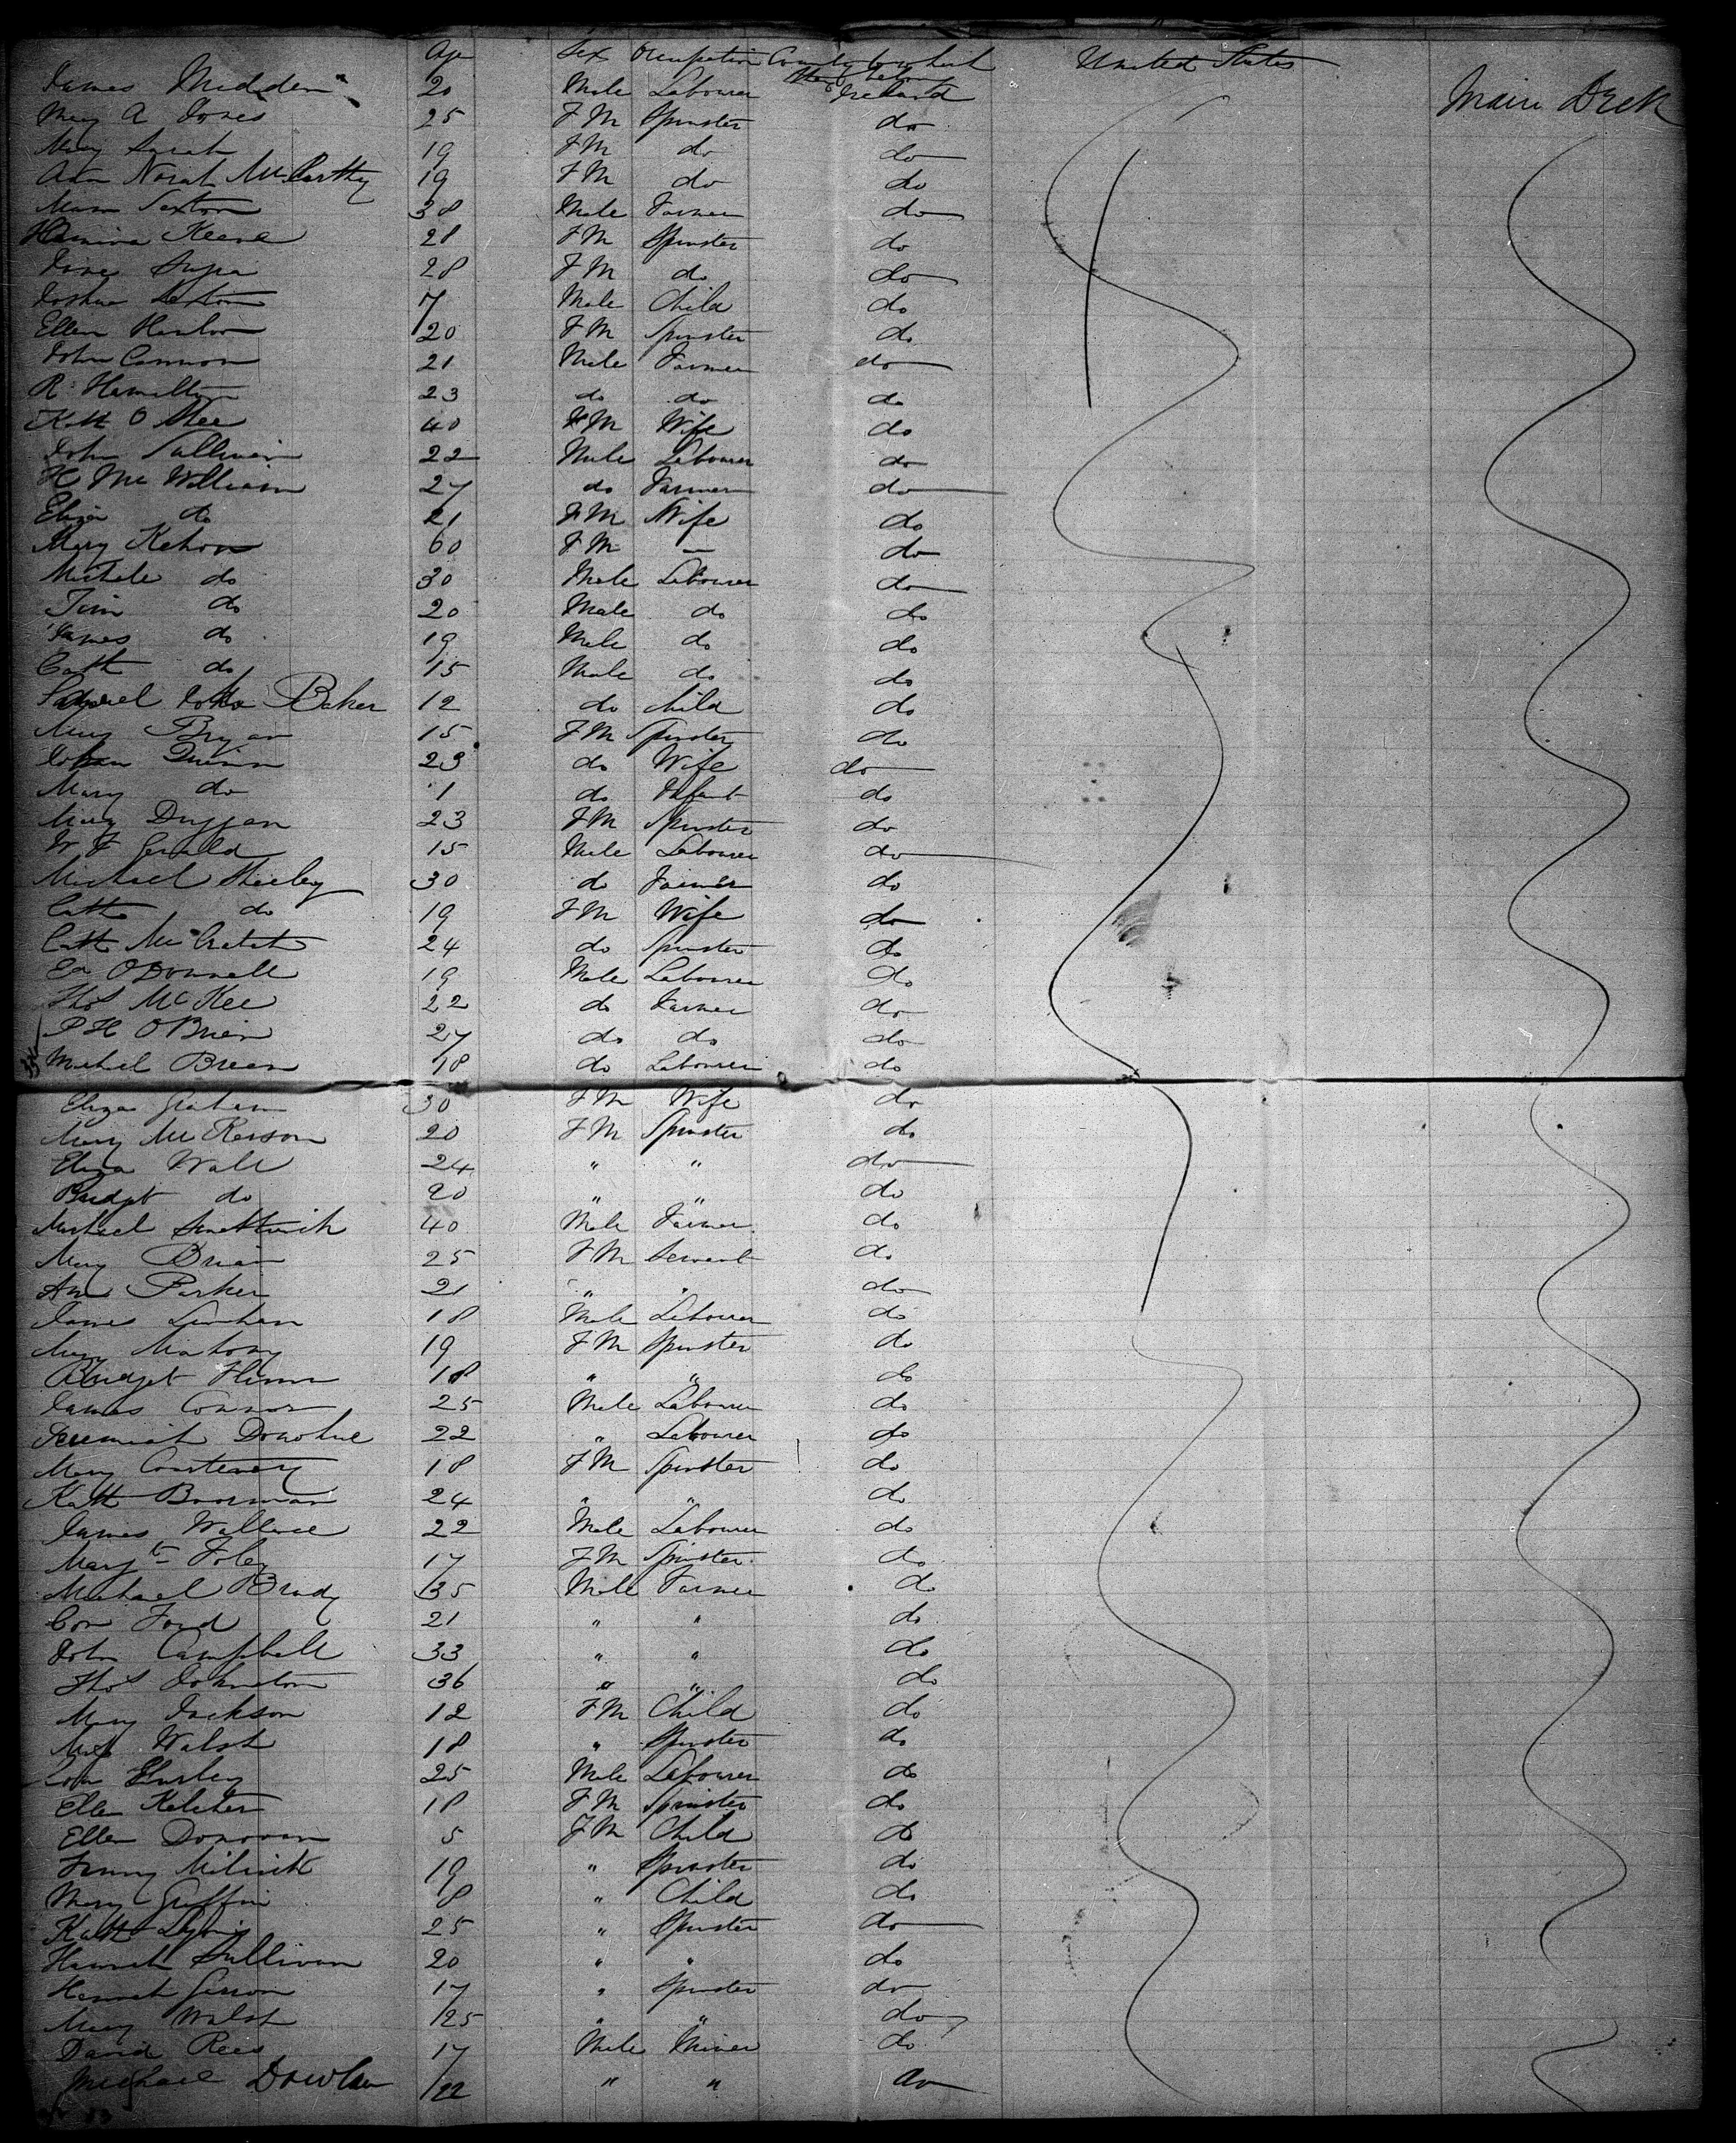 Age Sex Occupation Country to which they belong United States
James Madden 20 Male Labourer Ireland Main Deck
Mary A Jones 25 FM Spinster do
Mary Sarah 19 FM do do
Ann Norah McCarthy 19 FM do do
Sexton 38 Male Farmer do
Keene 28 FM Spinster do
28 FM do do
Joshua Sexton 7 Male Child do
Ellen Hanlon 20 FM Spinster do
John Cannon 21 Male Farmer do
R Hamilton 23 do do do
Kate O Mee 40 FM Wife do
John Sullivan 22 Male Labourer do
H McWilliam 27 do Farmer do
Eliza do 21 FM Wife do
Mary Kehoe 60 FM — do
Michele do 30 Male Labourer do
Tim do 20 Male do do
James do 19 Male do do
Cath do 15 Male do do
Samuel John Baker 12 do child do
Mary Bryan 15 FM Spinster do
Johan Quinn 23 do Wife do
Mary do 1 do Infant do
Mary Duggan 23 FM Spinster do
W F Gerald 15 Male Labourer do
Michael Sheeley 30 do Farmer do
Cath do 19 FM Wife do
Cath 24 do Spinster do
Ed O'Donnell 19 Male Labourer do
Thos McKee 22 do Farmer do
P H O'Brien 27 do do do
Michael Breen 18 do Labourer do
Eliza Graham 30 FM Wife do
Mary McKerson 20 FM Spinster do
Eliza Wall 24 " " do
Bridget do 20 " " do
Michael Smethwick 40 Male Farmer do
Mary Brian 25 FM Servant do
Ann Parker 21 " " do
James Linehan 18 Male Labourer do
Mary Mahony 19 FM Spinster do
Bridget Flinn 18 " " do
James Connor 25 Male Labourer do
Jeremiah Donohue 22 " Labourer do
Mary Courteney 18 FM Spinster do
Kate Boorman 24 " " do
James Wallace 22 Male Labourer do
Margt Foley 17 FM Spinster do
Michael Brady 35 Male Farmer do
Con Ford 21 " " do
John Campbell 33 " " do
Thos Johnston 36 " " do
Mary Jackson 12 FM Child do
Walsh 18 " Spinster do
Hurley 25 Male Labourer do
Ellen Keleher 18 FM Spinster do
Ellen Donovan 5 FM Child do
Fanny 19 " Spinster do
Mary Griffin 8 " Child do
Kate 25 " Spinster do
Hannah Sullivan 20 " " do
Hannah 17 " Spinster do
Mary Walsh 25 " " do
David Rees 17 Male Miner do
Michael Dowlan 22 " " do